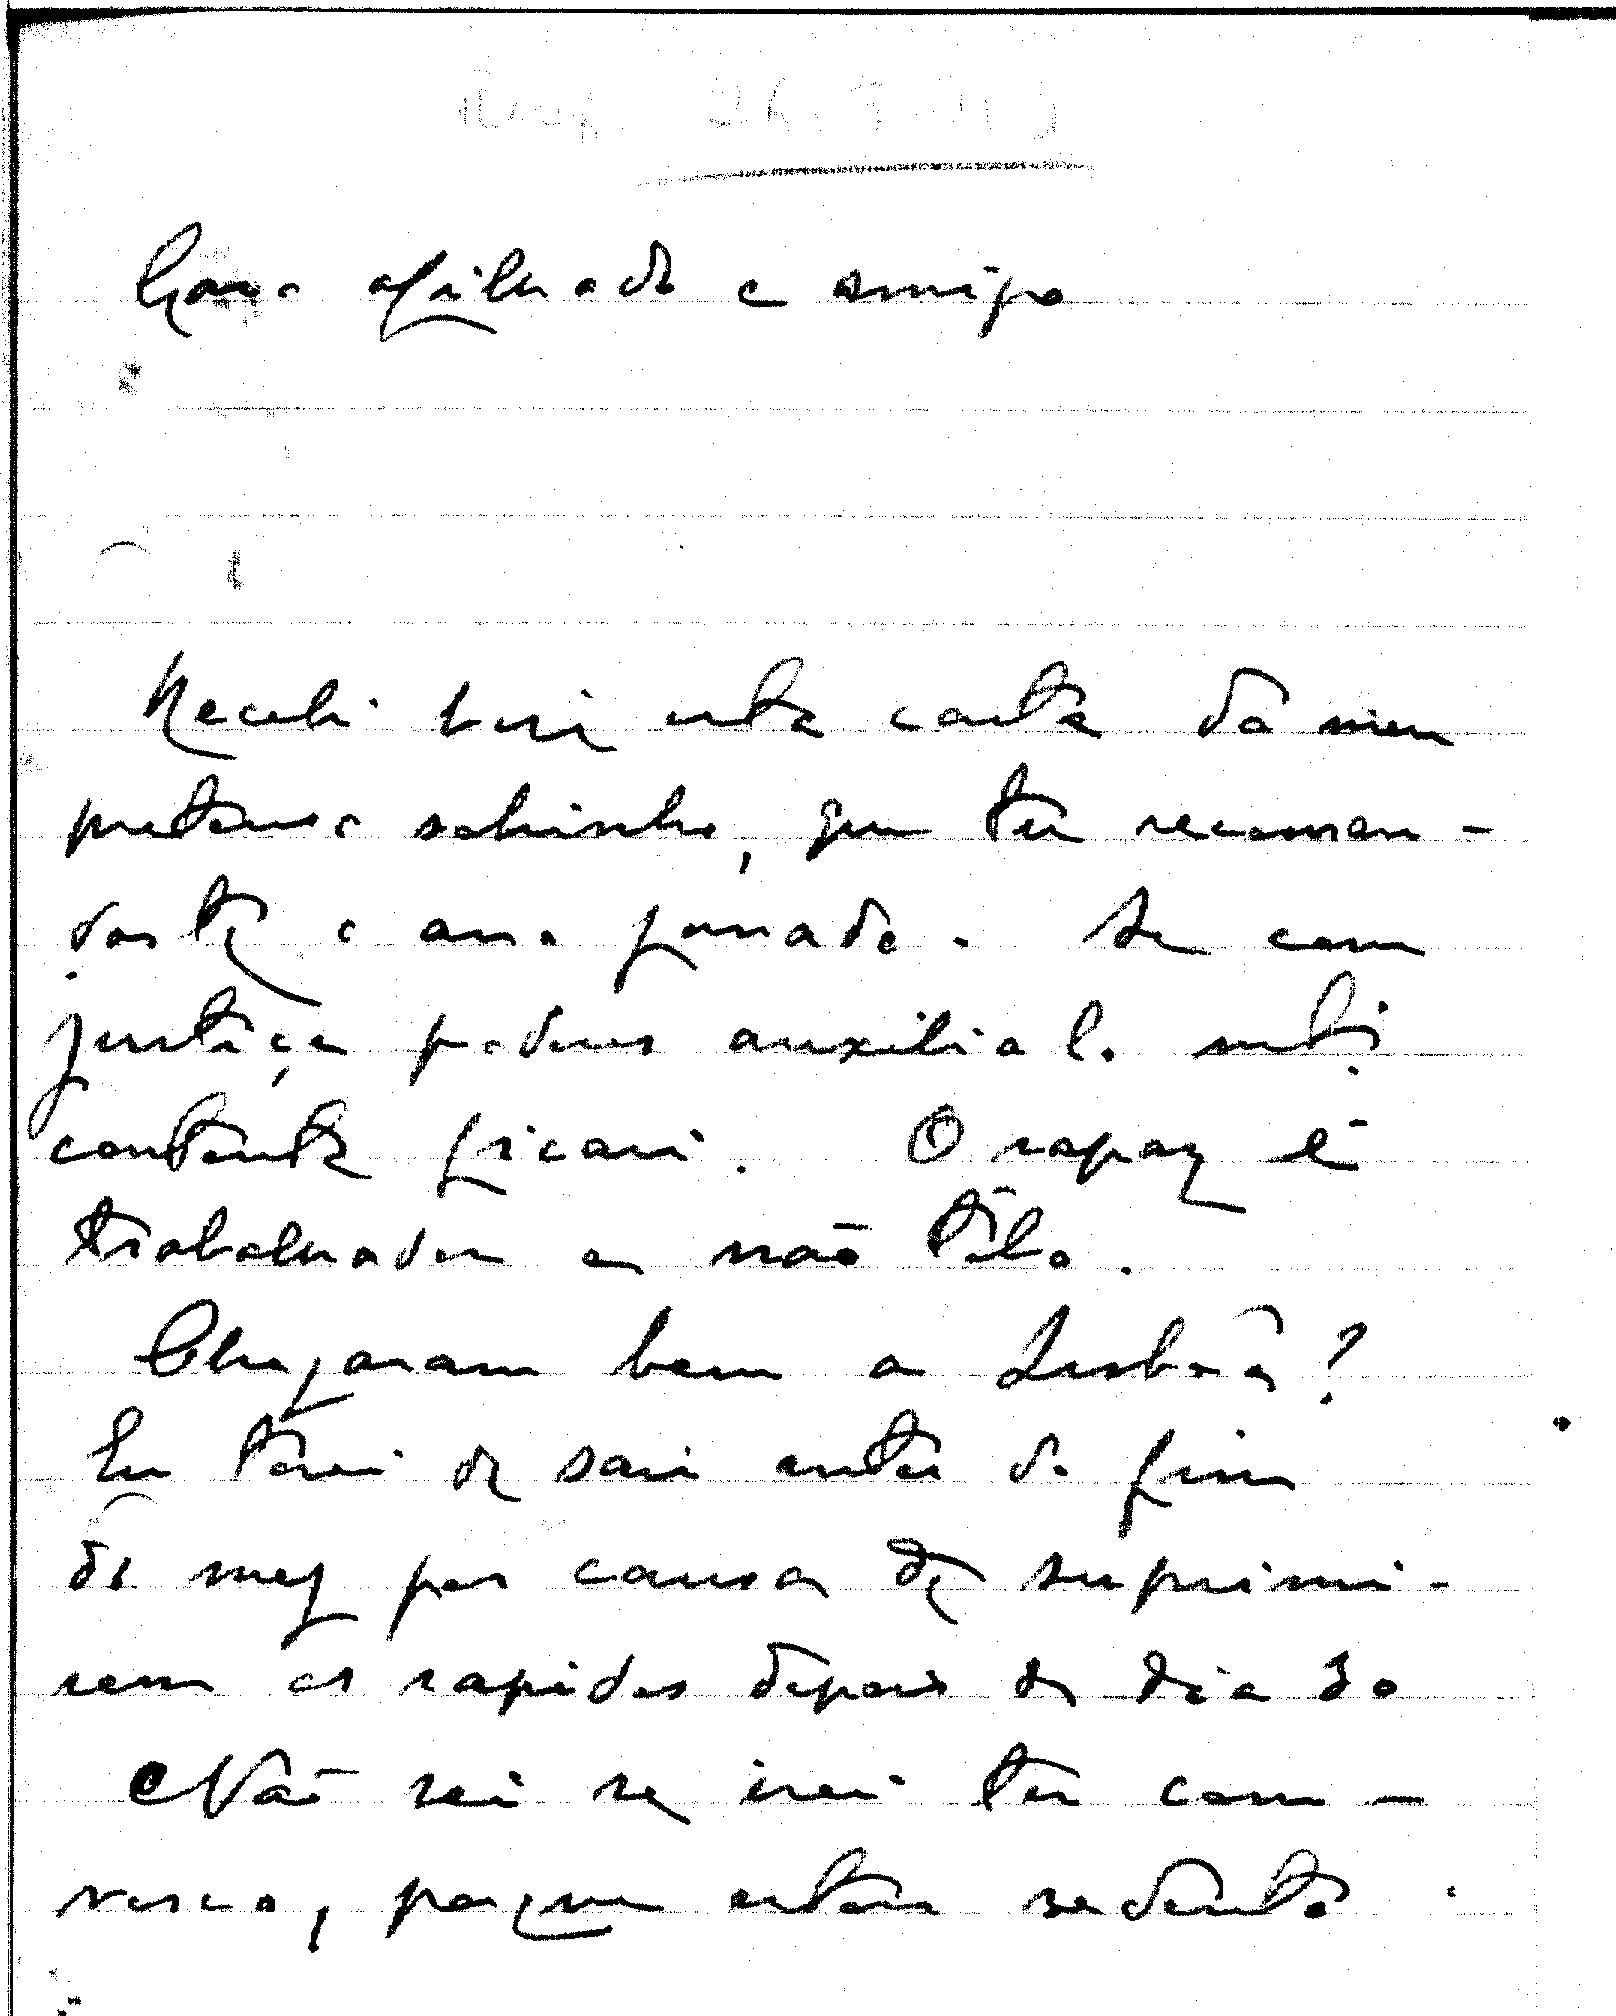 Caro afilhado e amigo
Recebi hoje esta carta do meu
pretenso sobrinho, que tu recomen-
daste e ano passado. Se com
justiça poderes auxilial-o muito
contente ficarei. O rapaz é
trabalhador e não tolo.
Chegaram bem a Lisbôa?
Eu terei de sair antes do fim
do mez por causa de suprimi-
rem os rapidos depois do dia 30
Não sei se irei ter com-
vosco, porque estou sedento